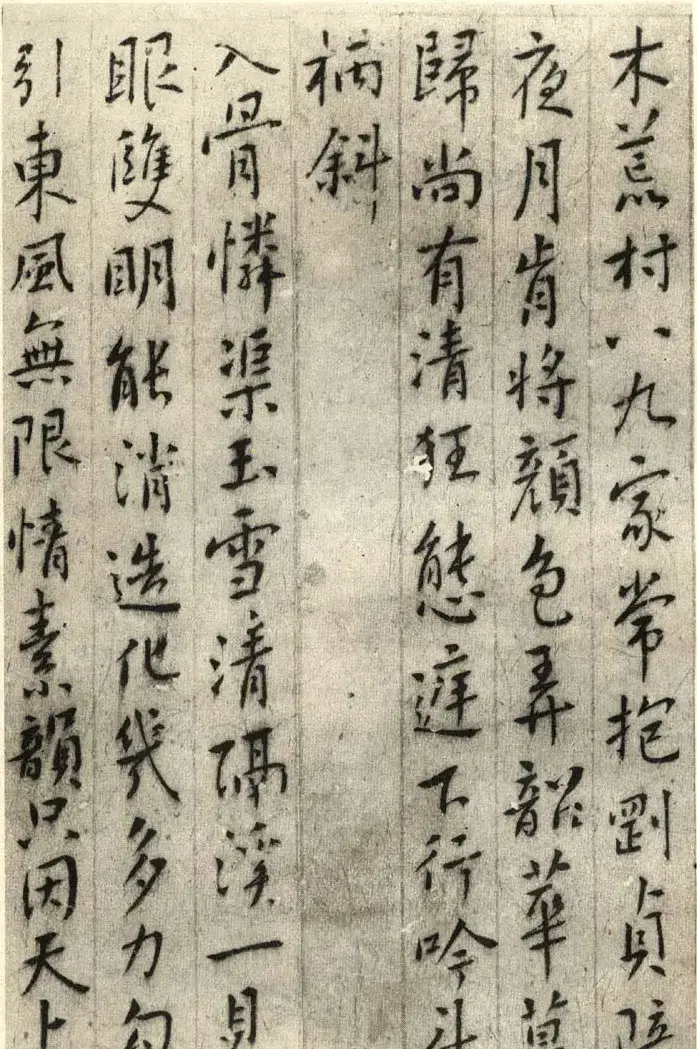 木荒村八九家常抱剛貞
夜月肯將顏色弄韶華莫
歸尚有清狂態庭下行吟斗
柄斜
入骨憐渠玉雪清隔溪一見
眼雙明能消造化幾多力勾
引東風無限情素韻只因天上